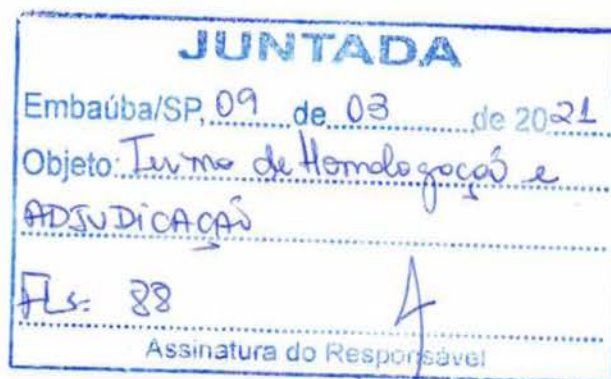 JUNTADA
Embaúba/SP, 09 de 03 de 2021
Objeto: Termo de Homologação e
ADJUDICAÇÃO
FLs. 88
Assinatura do Responsável